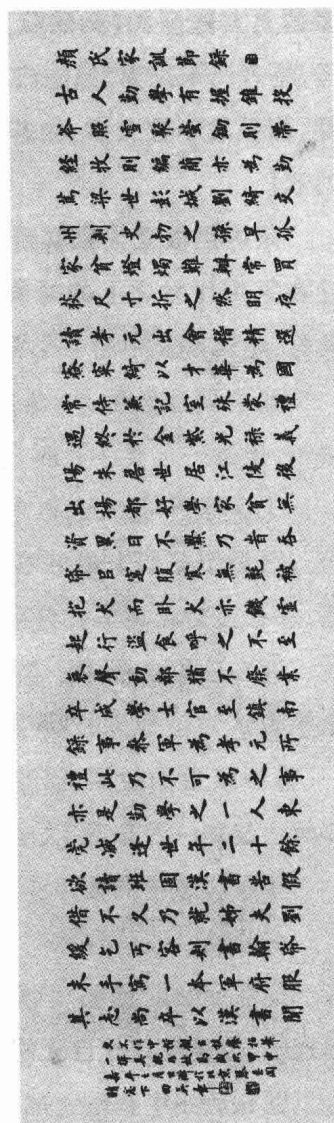 顏氏家訓節錄
古人勤學有握錐投
斧照雪聚螢鋤則帶
經牧則編簡亦為勤
篤梁世彭城劉綺交
州刺史勃之孫早孤
家貧燈燭難辦常買
荻尺寸折之然明夜
讀孝元出會稽精選
寮寀綺以才華為國
常侍兼記室殊蒙禮
遇終於金紫光祿義
陽朱詹世居江陵後
出揚都好學家貧無
資累日不爨乃旹吞
帋㠯寔腹寒無氈被
抱犬而臥犬亦饑虛
起行盜食呼之不至
哀聲動鄰猶不廢業
卒成學士官至鎮南
錄事參軍為孝元所
禮此乃不可為之事
亦是勤學之一人東
莞臧逢世年二十餘
欲讀班固漢書苦假
借不久乃就姊夫劉
緩乞丐客刺書翰帋
末手寫一本軍府服
其志尚卒以漢書聞